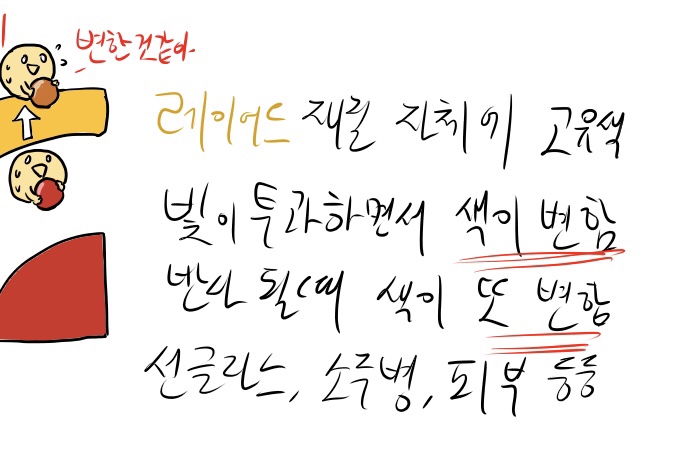 변한것같아
레이어드 재질 자체에 고유색
빛이 투과하면서 색이 변함
반사 될때 색이 또 변함
선글라스, 소주병, 피부 등등